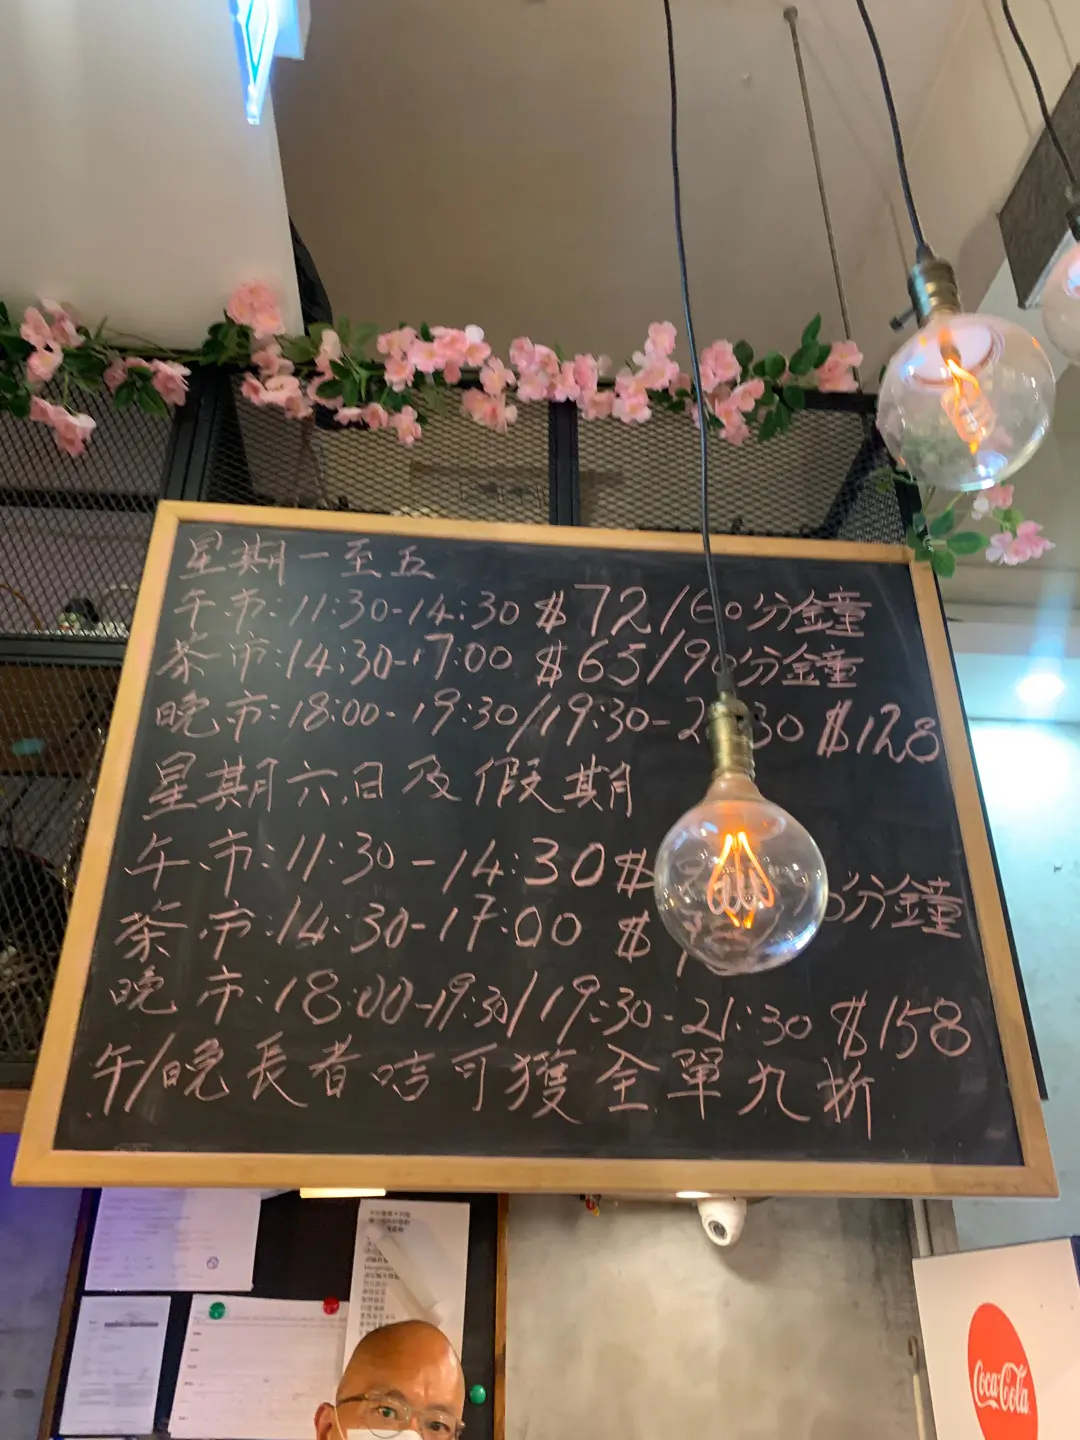 星期一至五
午市:11:30-14:30 $72/60分鐘
茶市:14:30-17:00 $65/90分鐘
晚市:18:00-19:30/19:30-21:30 $128
星期六,日及假期
午市:11:30-14:30 $ 分鐘
茶市:14:30-17:00 $
晚市:18:00-19:30/19:30-21:30 $158
午/晚長者咭可獲全單九折
Coca-Cola